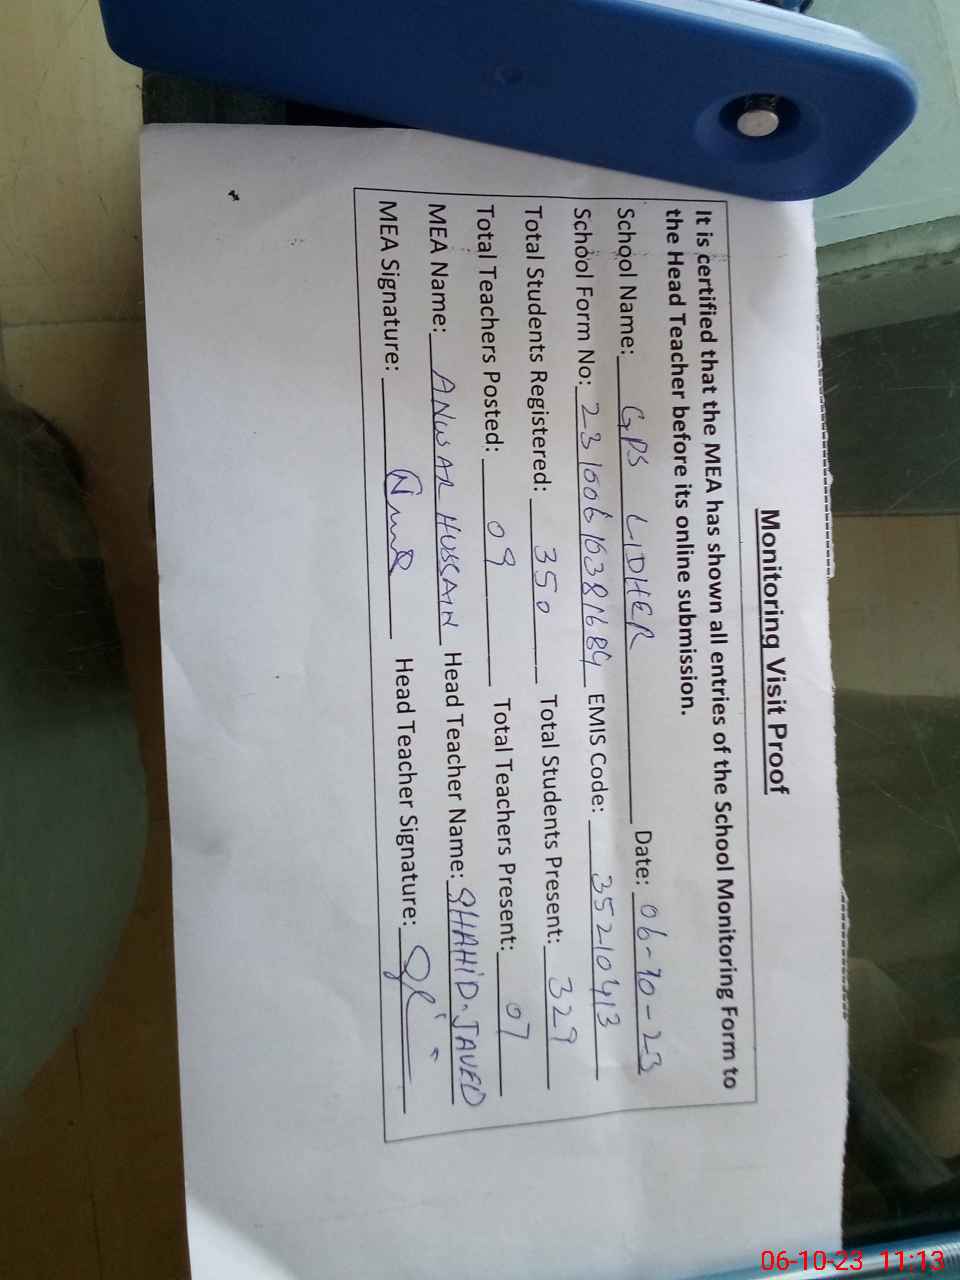 Monitoring Visit Proof
It is certified that the MEA has shown all entries of the School Monitoring Form to
the Head Teacher before its online submission.
School Name: GPS LIDHER Date: 06-10-23
School Form No: 23100616381689 EMIS Code: 35210413
Total Students Registered: 350 Total Students Present: 329
Total Teachers Posted: 09 Total Teachers Present: 07
MEA Name: ANWAR HUSSAIN Head Teacher Name: SHAHID JAVED
MEA Signature: Head Teacher Signature:
06-10-23 11:13